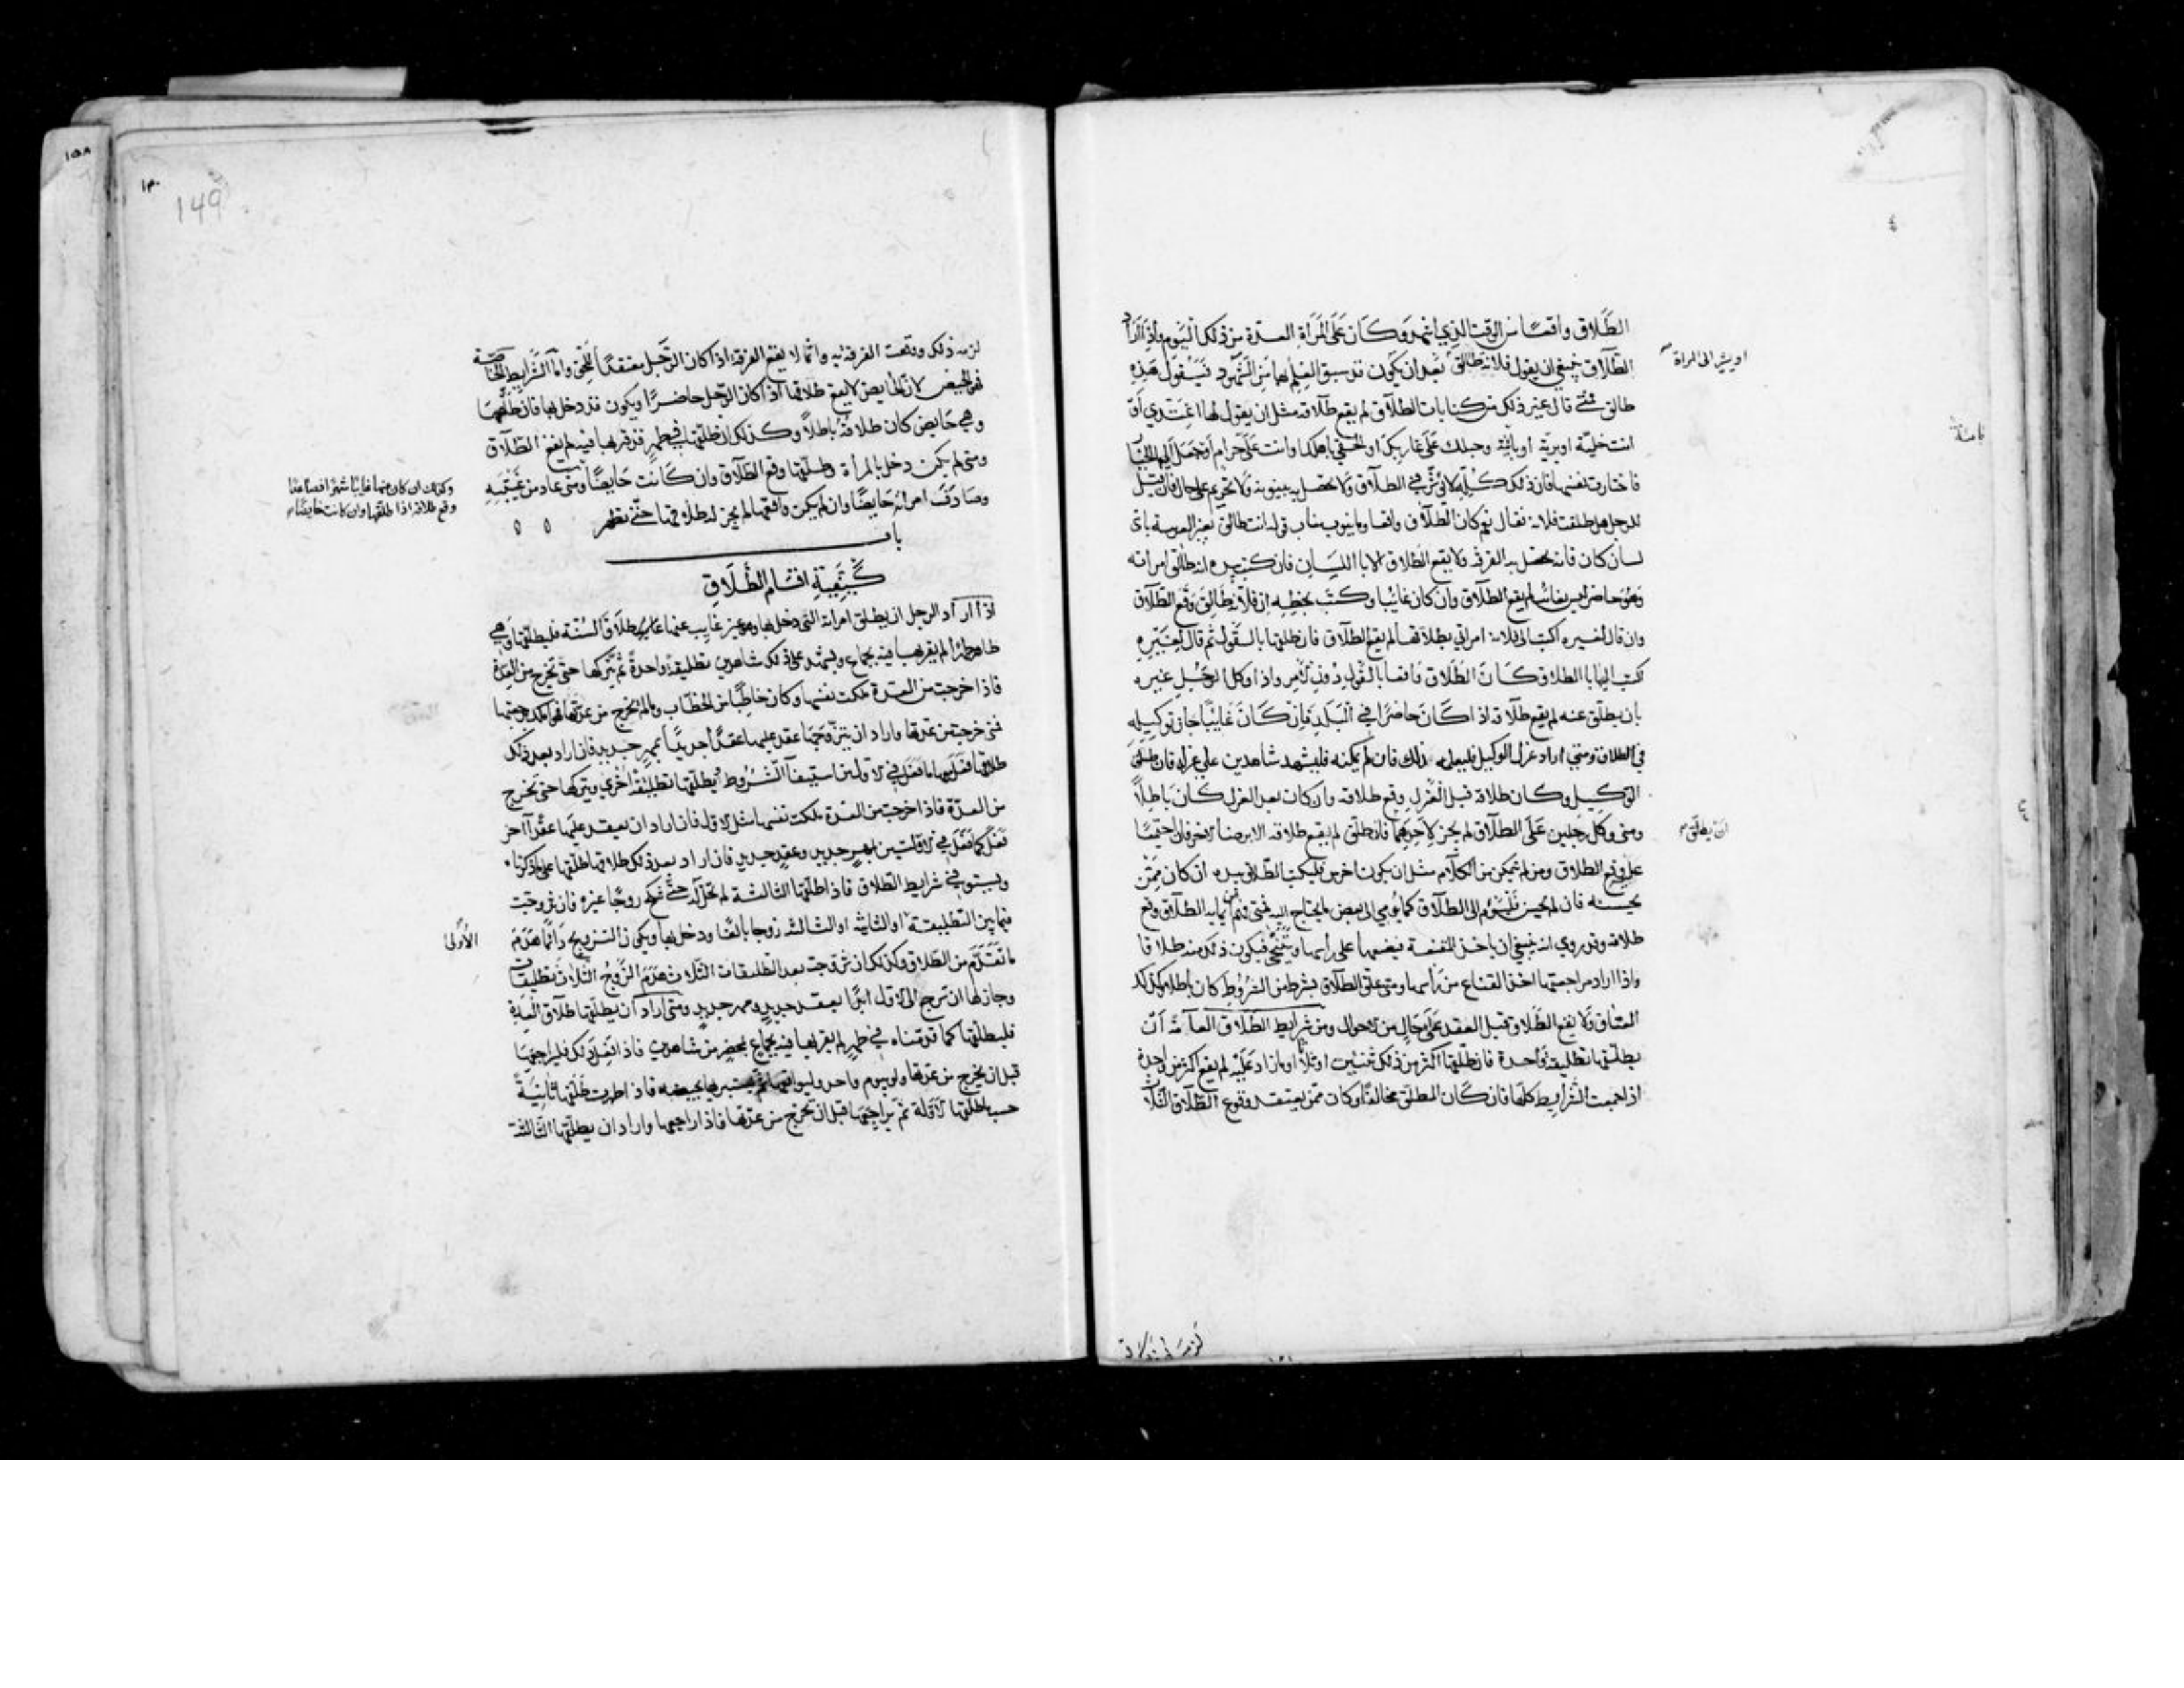 الطَّلاق واقعًا من الوقت الذي اتهم وَكَانَ عَلَى المَرْأَةِ العدة من ذلك اليَوم وَإِذَا أَرَادَ
الطَّلَاق فينبغي ان يقول فلانة طالق بعد ان يكون قد سبق العِلم بها من الشهود فَيَقول هَذِه
او يشير الى المراة
طالق فمتى قال غير ذلك من كنايات الطلاق لم يقع طلاقه مثل ان يقول لها اعتدي أَوْ
انت خلية او برية او باينة وحبلك عَلَى غاربكِ او الحقي باهلك او انت عَلَيَّ حرام أَو جَعَلَ إليها الخيار
فاختارت نفسها فان ذلك كُلّه لا يؤثر في الطلاق وَلَا يحصل به بينونة وَلَا تحريم على حال فان قِيل
للرجل هل طلقت فلانة فقال نعم كان الطلاق واقعا وما ينوب مناب قوله انت طالق بغير العربية باي
لسان كان فانه يحصل به الفرقة ولا يقع الطلاق الا باللسان فان كتب بيده انه طالق امراته
وَهُوَ حاضر ليس بغائب لم يقع الطلاق وَان كان غائبا وكتب بخطه ان فلانة طَالِق وقع الطلاق
وان قال لغيره اكتب الى فلانة امراتي بطلاقها لم يقع الطلاق فان طلقها بالقول ثم قال لِغَيْرِهِ
اكتب اليها بالطلاق كَانَ الطلاق واقعا بالقول دُونِ الأمر واذا وكل الرجل غيره
بان يطلق عنه لم يقع طلاقه اذا كَانَ حاضرًا في البَلَدِ فَإِنْ كَانَ غَايِبًا جاز توكيله
في الطلاق ومتى اراد عزل الوكيل فليعلمه ذلك فان لم يمكنه فليشهد شاهدين على عزله فان طلق
الوكيل وكان طلاقه قبل العَزْلِ وقع طلاقه وان كان بعد العزل كَانَ باطلًا
ومتى وكل رجلين عَلَى الطلاق لم يجز لِأَحَدِهِمَا ان يطلق فان طلق لم يقع طلاقه الا برضا الاخر فان اجتمعا
ان يطلق
على وقع الطلاق ومن لم يتمكن من الكلام مثل ان يكون اخرس فليكتب الطلاق بيده ان كان مِمَّن
يحسنه فان لم يحسن فَلْيُوم الى الطلاق كما يُومي الى بعض ما يحتاج اليه فمتى فهم من ايمايه الطلاق وقع
طلاقه وقد روي انه ينبغي ان ياخذ المقنعة فيضعها على رأسها ويتنحى فيكون ذلك منه طلاقا
واذا اراد مراجعتها اخذ القناع من رَأسها ومتى علق الطلاق بشرط من الشروط كان باطلا وكذلك
العتاق وَلَا يقع الطلاق قبل العقد عَلَى حال من الاحوال ومن شرايط الطَّلَاق العامة أَنْ
يطلقها تطليقة واحدة فان طلقها اكثر من ذلك ثنتين او ثلاثا او ما زاد عَلَيْهِ لم يقع اكثر من واحدة
اذا اجتمعت الشرايط كلها فان كَان المطلق مخالفا وكان ممن يعتقد وقوع الطلاق الثلاث
لزمه ذلك ووقعت الفرقة به وانما لا يقع الفرقة اذا كان الرجل معتقدا للحق وامّا الشرايط الخاصة
فهو الحيض لان الحايض لا يقع طلاقها اذا كان الرجل حاضرًا ويكون قد دخل بها فان طلقها
وهي حايض كان طلاقه باطلاً وكذلك ان طلقها في طهرٍ قد قربها فيه لم يقع الطلاق
ومتى لم يكن دخل بالمرأة وطلقها وقع الطلاق وان كَانت حايضًا ومتى عاد من غَيْبَتِهِ
وكذلك ان كان عنها غايبًا شهرًا فصاعدا
وقع طلاقه اذا طلقها وان كانت حايضًا
وصادف امراته حايضًا وان لم يكن واقعها لم يجز له طلاقها حتى تطهر
باب
كَيْفِيَّةِ اقسَام الطَّلَاقِ
اذا أراد الرجل ان يطلق امراته التي دخل بها وهو غير غايب عنها طلاق السُّنَّة فليطلقها وهي
طاهر طهرًا لم يقربها فيه بجماع ويشهد على ذلك شاهدين تطليقة واحدة ثم يتركها حتى تخرج من العدة
فاذا خرجت من العدة ملكت نفسها وكان خاطبًا من الخطاب وما لم تخرج من عدتها فهو املك برجعتها
فمتى خرجت من عدتها واراد ان يتزوجها عقد عليها عقدًا جديدًا بمهر جديد فان اراد بعد ذلك
طلاقها فعل بها ما فعل في الاولة من استيفاء الشُّرُوط يُطلقها تطليقة أخرى ويتركها حتى تَخْرج
من العدة فاذا خرجت من العدة ملكت نفسها مثل الاول فان اراد ان يعقد عليها عقدًا آخر
فعل كما فعل في الاولتين بمهرٍ جديدٍ وعقدٍ جديدٍ فان اراد بعد ذلك طلاقها طلقها على ما ذكرناه
ويستوفي شرايط الطلاق فاذا طلقها الثالثة لم تحل له حتى تنكح زوجًا غيره فان تزوجت
فيما بين التطليقة الأولى او الثانية او الثالثة زوجا بالغًا ودخل بها ويكون التزويج دَائمًا هَدَمَ
الأولى
ما تَقَدَّمَ من الطلاق وكذلك ان تزوجت بعد التطليقات الثلاث هَدَمَ الزَّوْجُ الثلاث تطليقات
وجاز لها ان ترجع الى الاول ابدًا بعقد جديدٍ ومهر جديدٍ ومتى اراد أن يطلقها طلاق العِدَّةِ
فليطلقها كما قدمناه في طهرٍ لم يقربها فيه بجماع بمحضر من شاهدين فاذا فعل ذلك فليراجعها
قبل ان يخرج من عدتها ولو بيوم واحد وليواقعها ثم يستبريها بحيضه فاذا طهرت طلقها ثانِيَةً
حسب ما طلقها الاولة ثم يراجعها قبل ان تخرج من عدتها فاذا راجعها واراد ان يطلقها الثالثة
149